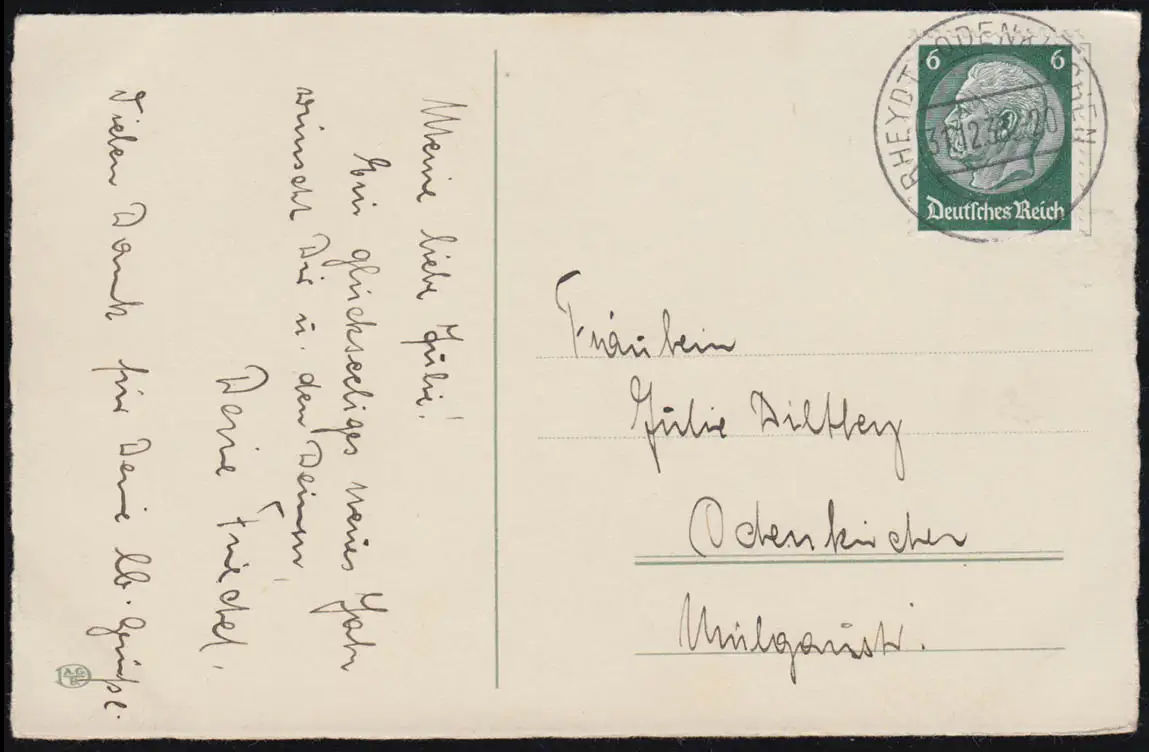 Meine liebe Julie!
Ein glückseliges neues Jahr
wünscht Dir u. den Deinen,
Deine Friedel.
Vielen Dank für Deine lb. Grüße.
6 6
Deutsches Reich
RHEYDT-ODENKIRCHEN
31.12.
Fräulein
Julie Dilthey
Odenkirchen
Mülgaustr.
A.G.
B